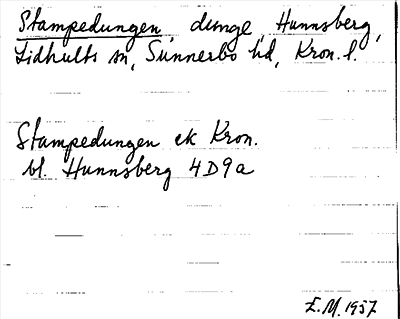 Stampedungen, dunge, Hunnsberg,
Lidhults sn, Sunnerbo hd, Kron. l.
Stampedungen ek Kron.
bl. Hunnsberg 4D9a
E.M. 1957